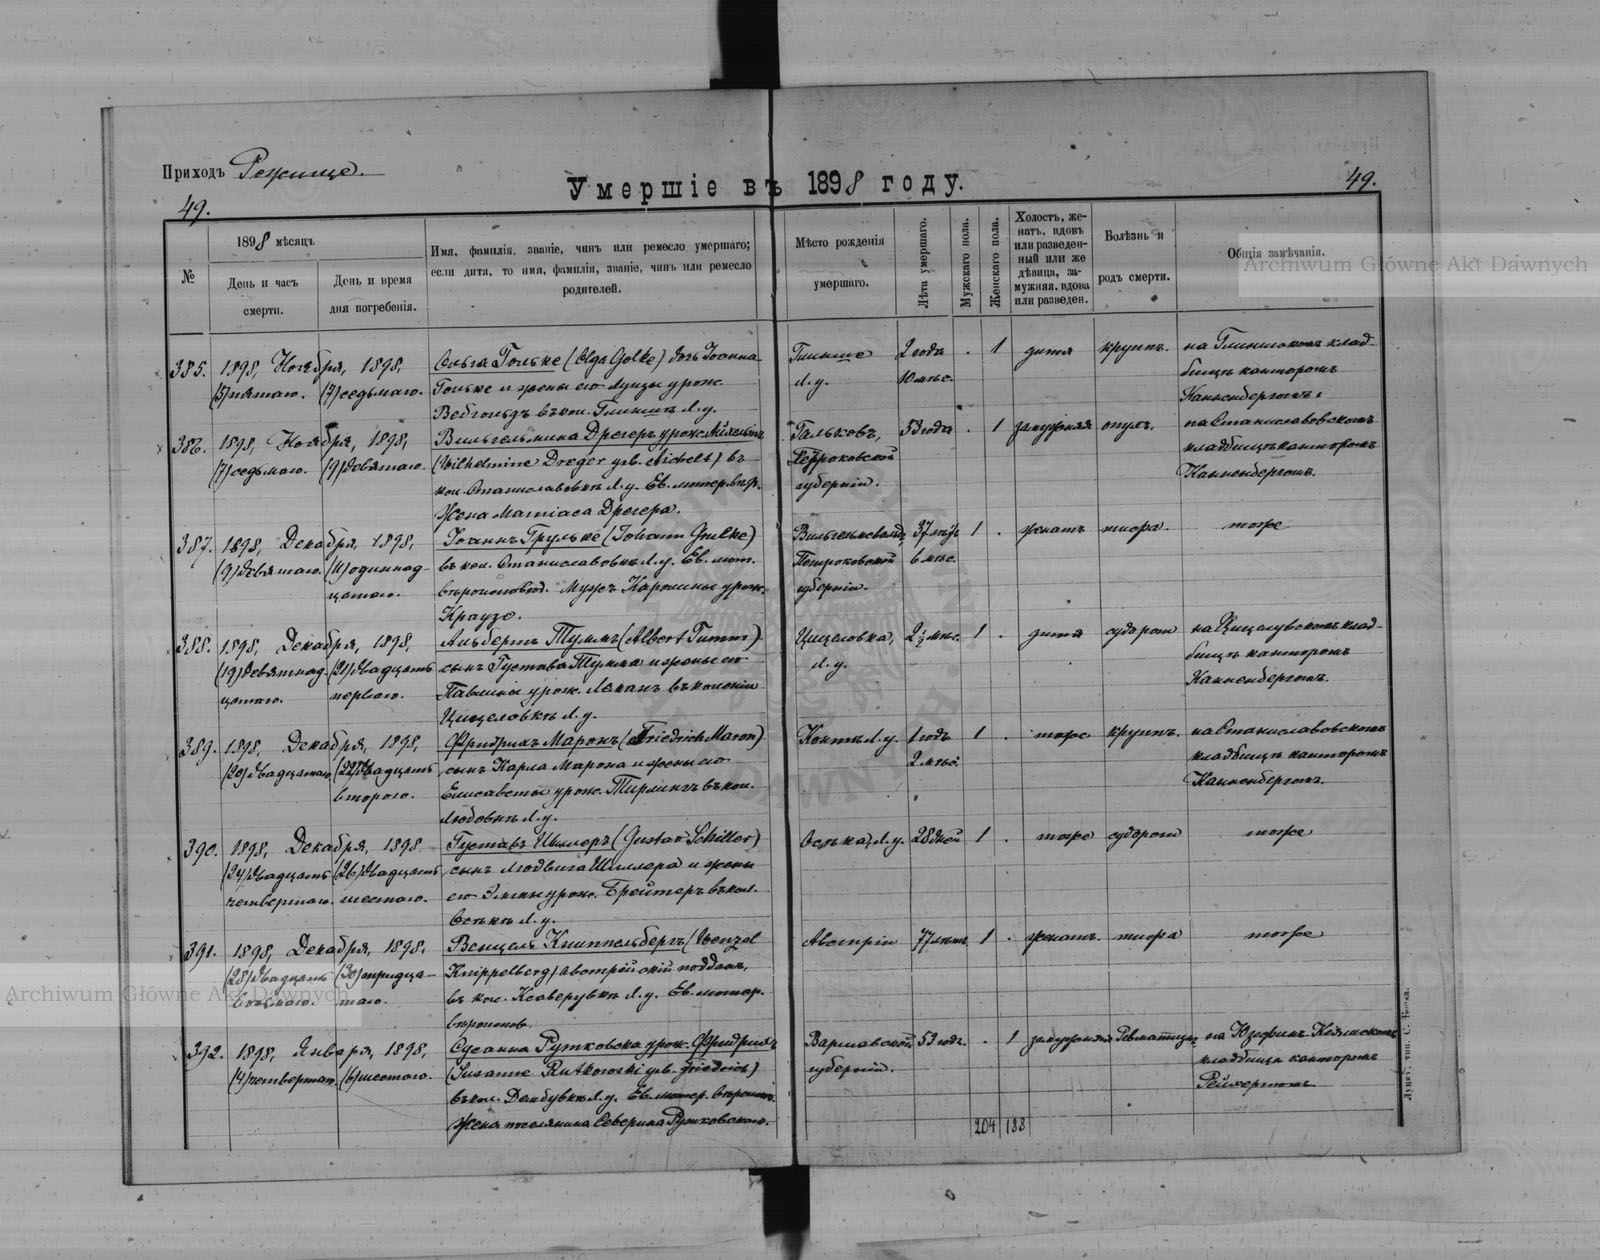 Приходъ Рожище.
Умершіе въ 1898 году.
49.
49.
№
1898 мѣсяцъ
День и часъ
смерти.
День и время
дня погребенія.
Имя, фамилія, званіе, чинъ или ремесло умершаго;
если дитя, то имя, фамилія, званіе, чинъ или ремесло
родителей.
Мѣсто рожденія
умершаго.
Лѣта умершаго.
Мужскаго пола.
Женскаго пола.
Холостъ, же-
натъ, вдовъ
или разведен-
ный или же
дѣвица, за-
мужняя, вдова
или разведен.
Болѣзнь и
родъ смерти.
Общія замѣчанія.
Archiwum Główne Akt Dawnych
385. 1898, Ноября, 1898, Ольга Гольке (Olga Golke) дочь Іоанна Глинище 2 года . 1 дитя крупъ. на Глинискомъ клад-
(5) пятаго. (7) седьмаго. Гольке и жены его Луизы урож. Л. у. 10 мѣс. бищѣ канторомъ
въ кол. Глинищѣ Л. у. Канненбергомъ.
386. 1898, Ноября, 1898, Вильгельмина Дрегеръ урож. Гальковъ, 53 года . 1 замужняя опух. на Станиславовскомъ
(7) седьмаго. (9) девятаго. (Wilhelmine Dreger geb. Aichelt) въ Петроковской кладбищѣ канторомъ
кол. Станиславовкѣ Л. у. Ев. лютер. губерніи. Канненбергомъ.
Жена Матіаса Дрегера.
387. 1898, Декабря, 1898, Іоаннъ Грульке (Johann Grulke) 37 лѣтъ 1 . женатъ тифа. тоже
(9) девятаго. (11) одиннад- въ кол. Станиславовкѣ Л. у. Ев. лют. Петроковской 6 мѣс.
цатаго. вѣроисповѣд. Мужъ Каролины урож. губерніи.
Краузе.
388. 1898, Декабря, 1898, Альбертъ Туммъ (Albert Tumm) Цицеловка, 2½ мѣс. 1 . дитя судорог на Цицелувскомъ клад-
(19) девятнад- (21) двадцать сынъ Густава Тумма и жены его Л. у. бищѣ канторомъ
цатаго. перваго. Павлины урож. въ колоніи Канненбергомъ.
Цицеловкѣ Л. у.
389. 1898, Декабря, 1898, Фридрихъ Маронъ (Friedrich Maron) Л. у. 1 годъ 1 . тоже крупъ. на Станиславовскомъ
(20) двадцатаго. (22) двадцать сынъ Карла Марона и жены его 2 мѣс. кладбищѣ канторомъ
втораго. Елисаветы урож. въ кол. Канненбергомъ.
Любовкѣ Л. у.
390. 1898, Декабря, 1898. Густавъ Шиллеръ (Gustav Schiller) Оська, Л. у. 28 дней 1 . тоже судорог тоже
(24) двадцать (26) двадцать сынъ Людвига Шиллера и жены
четвертаго. шестаго. его урож. Брейтеръ въ кол.
Оськѣ Л. у.
391. 1898, Декабря, 1898, Венцель Книппельбергъ (Wenzel Австріи 77 лѣтъ 1 . женатъ. тифа тоже
(28) двадцать (30) тридца- Knippelberg) австрійскій поддан.
восьмаго. таго. въ кол. Ксаверувкѣ Л. у. Ев. лютер.
вѣроиспов.
Archiwum Główne Akt Dawnych
392. 1898, Января, 1898, Сусанна Рутковска урож. Фридрихъ Варшавской 53 годъ. . 1 замужняя Ревматизмъ на Юзефин. кладбищѣ канторомъ
(4) четвертаго. (6) шестаго. (Susanne Rutkowski geb. Friedrich) губерніи. Рейхертомъ
въ кол. Дембувкѣ Л. у. Ев. лютер. вѣроиспов.
Жена Северина Рутковскаго.
204 188
Луцкъ, тип. С. Бонка.